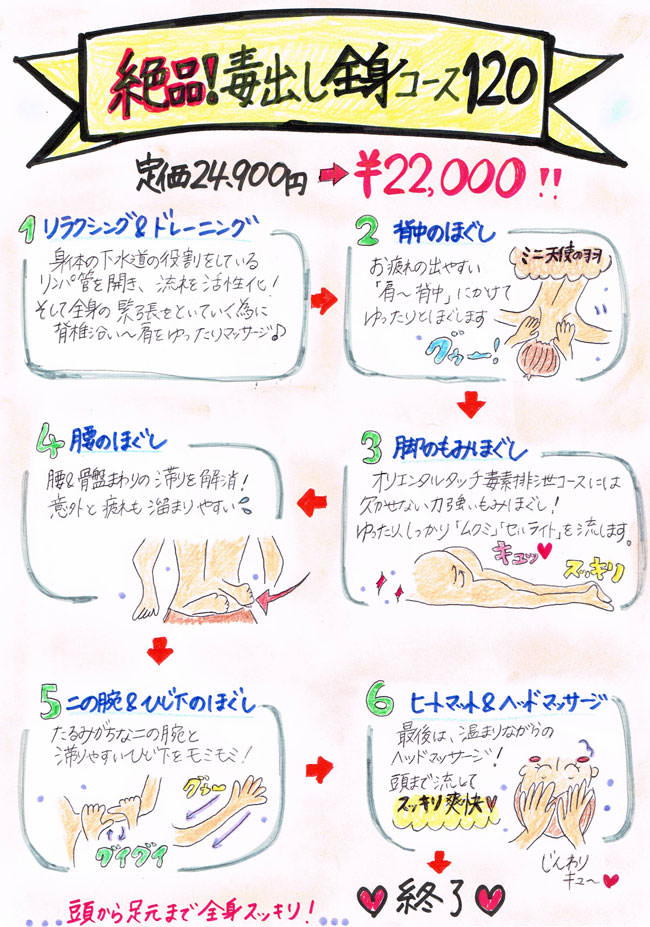 絶品!毒出し全身コース120
定価24,900円➡¥22,000!!
1 リラクシング&ドレーニング
身体の下水道の役割をしている
リンパ管を開き、流れを活性化!
そして全身の緊張をといていく為に
脊椎沿い〜肩をゆったりマッサージ♪
2 背中のほぐし
お疲れの出やすい
「肩〜背中」にかけて
ゆったりとほぐします
ミニ天使の羽
グゥー!
3 脚のもみほぐし
オリエンタルタッチ毒素排泄コースには
欠かせない力強いもみほぐし!
ゆったり、しっかり「ムクミ」「セルライト」を流します。
キュッ♥
スッキリ
4 腰のほぐし
腰&骨盤まわりの滞りを解消!
意外と疲れも溜まりやすい
5 二の腕&ひじ下のほぐし
たるみがちな二の腕と
滞りやすいひじ下をモミモミ!
グゥー
グイグイ
6 ヒートマット&ヘッドマッサージ
最後は、温まりながらの
ヘッドマッサージ!
頭まで流して
スッキリ爽快♥
じんわり
キュ〜♥
♥終了♥
....頭から足元まで全身スッキリ!....